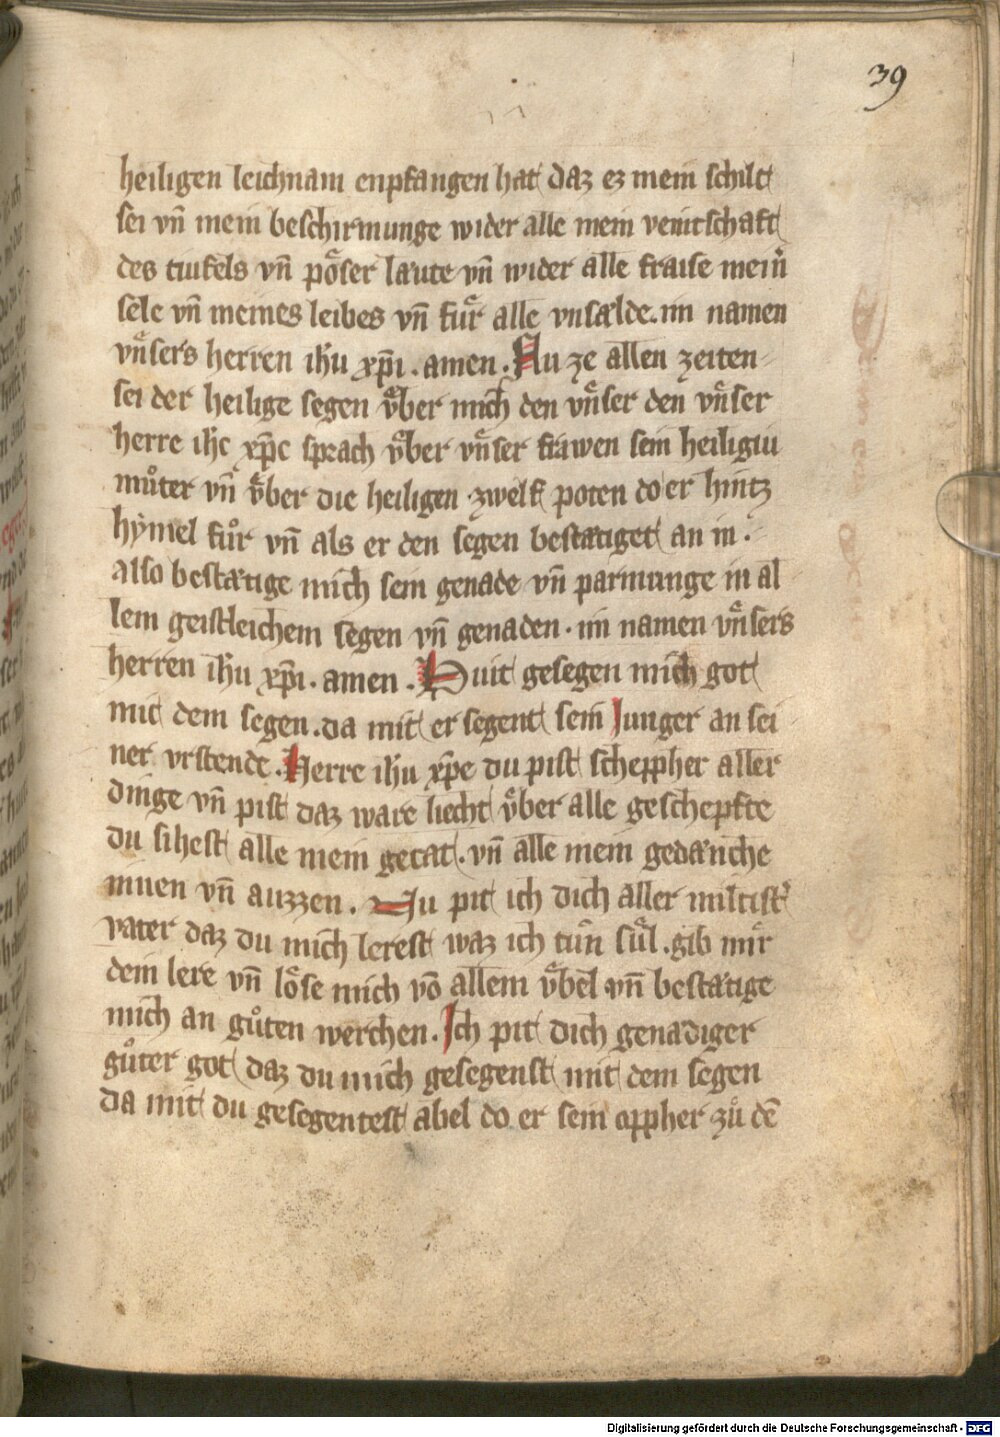 39
heiligen leichnam enpfangen hat daz ez mein schilt
sei vn̄ mein beschirmunge wider alle mein veintschaft
des tiufels vn̄ po᷑ser laute vn̄ wider alle fraise mein᷑
sele vn̄ meines leibes vn̄ fuͤr alle vnsælde. im namen
vnͤsers herren ih̄u xp̄i . amen . Nu ze allen zeiten
sei der heilige segen vͤber mich den vnͤser den vnͤser
herre ih̄c xp̄c sprach vͤber vnͤser frawen sein heiligiu
muͦter vn̄ vͤber die heiligen zwelf poten do er hintz
hymel fuͦr vn̄ als er den segen bestætiget an in .
also bestætige mich sein genade vn̄ parmunge in al
lem geistleichem segen vn̄ genaden . im namen vnͤsers
herren ih̄u xp̄i . amen . Huit gesegen mich got
mit dem segen . da mit er segent sein Junger an sei
ner vrstende . Herre ih̄u xp̄e du pist scheppher aller
dinge vn̄ pist daz ware liecht vͤber alle geschepfte
du sihest alle mein getat . vn̄ alle mein gedænche
innen vn̄ auzzen . Nu pit ich dich aller miltist᷑
vater daz du mich lerest waz ich tuͦn suͤl . gib mir
dein lere vn̄ loͤse mich vō allem vͤbel vn̄ bestætige
mich an guͦten werchen . Ich pit dich genadiger
guͦter got daz du mich gesegenst mit dem segen
da mit du gesegentest abel do er sein oppher zuͦ dē
Digitalisierung gefördert durch die Deutsche Forschungsgemeinschaft - DFG